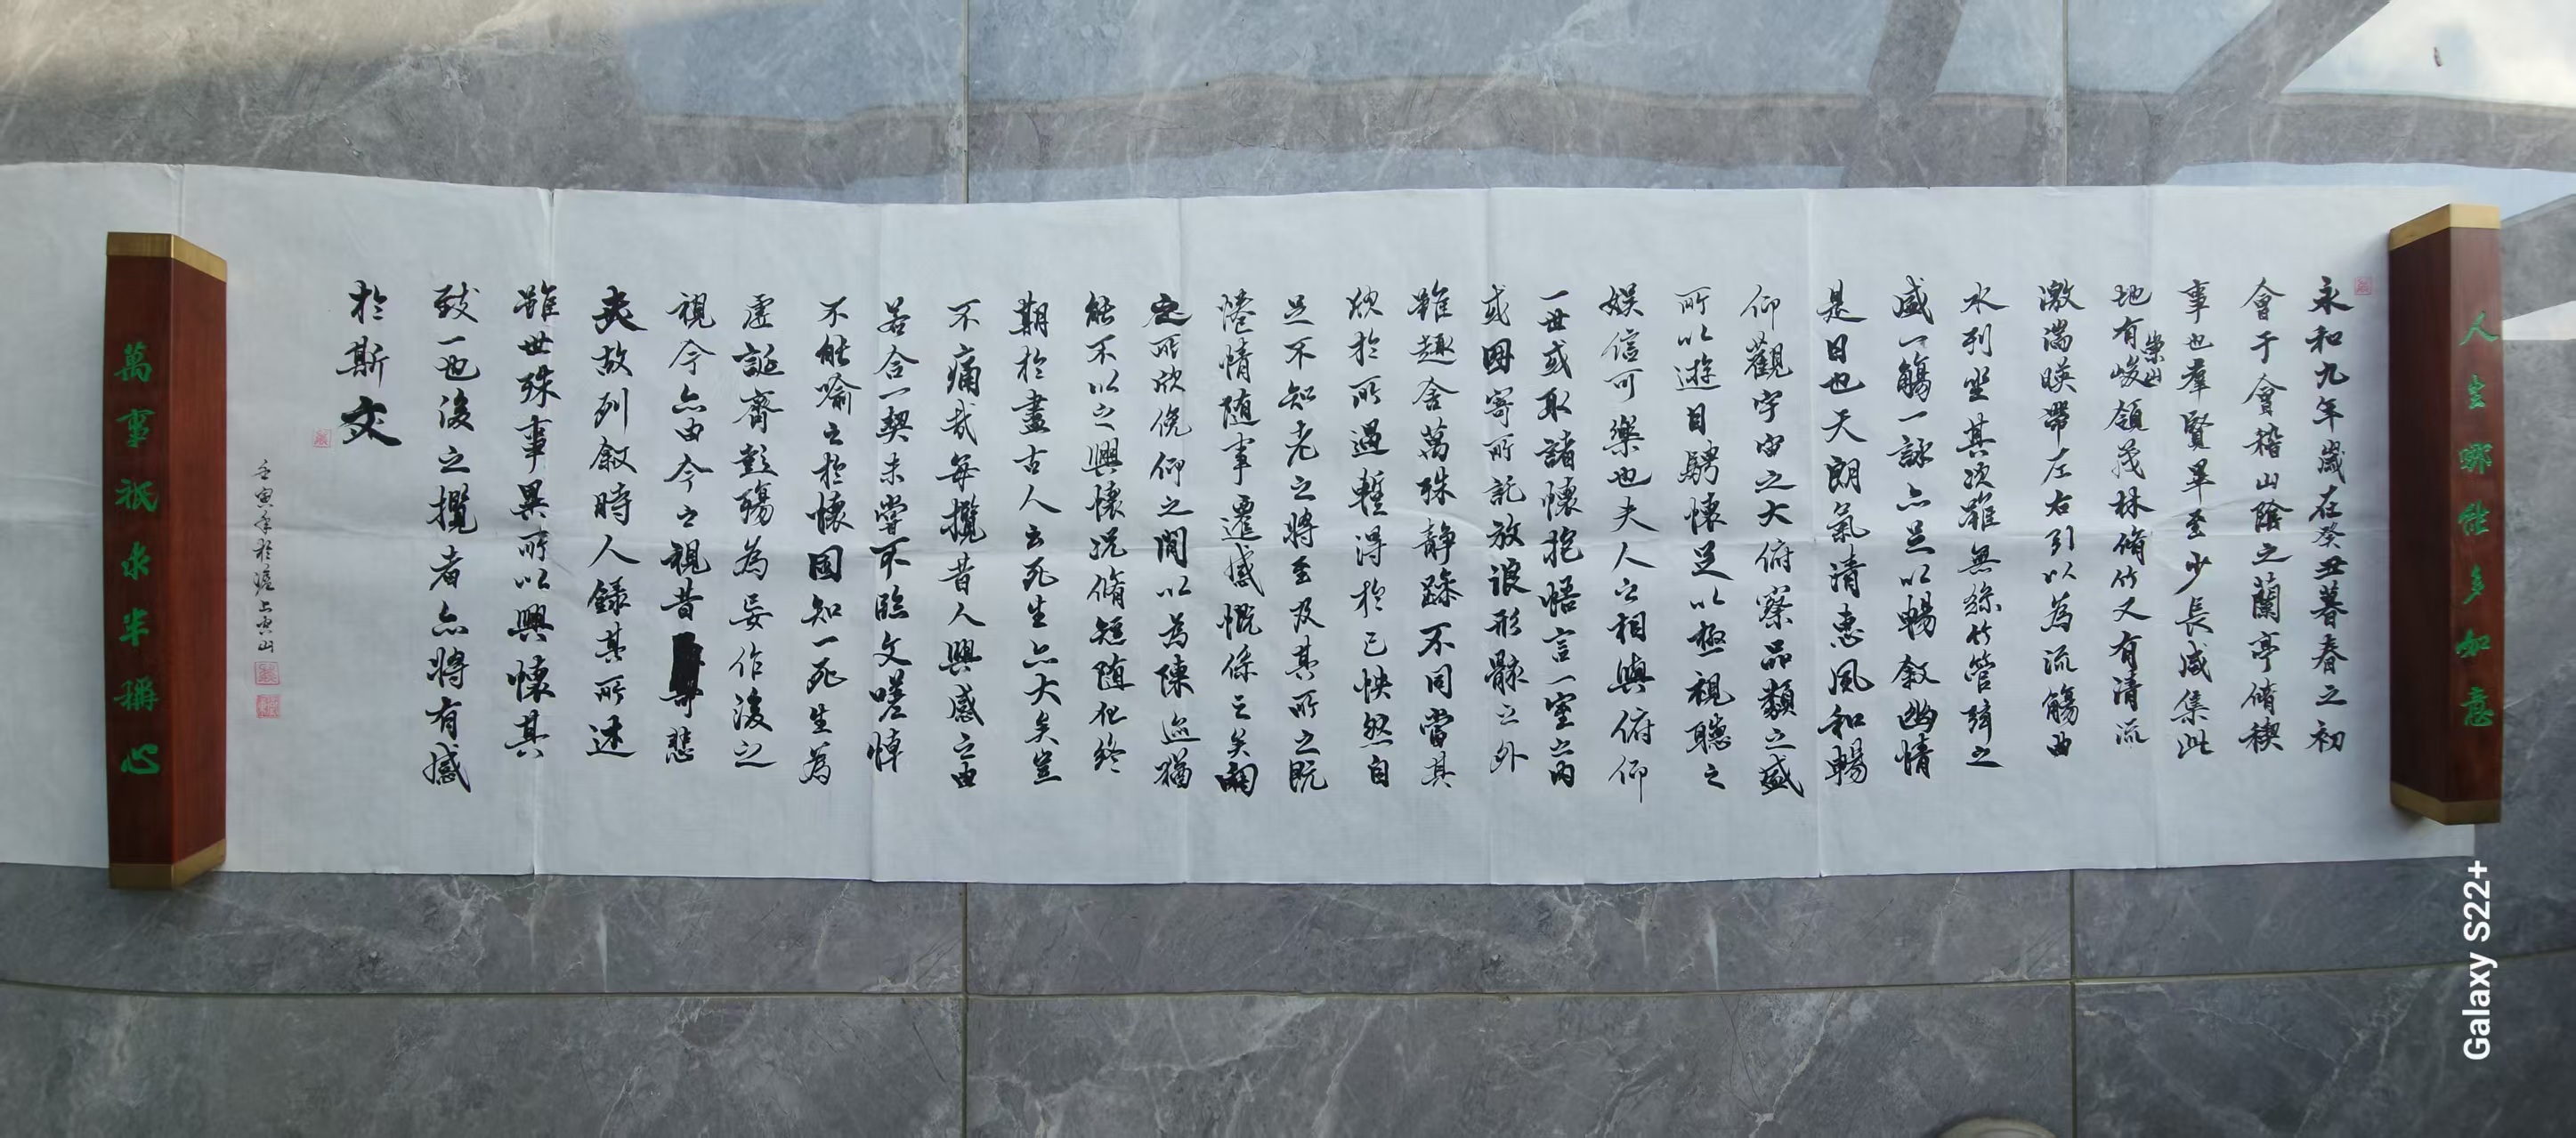 人生哪能多如意
永和九年歲在癸丑暮春之初
會于會稽山陰之蘭亭脩稧
事也羣賢畢至少長咸集此
地有崇山峻領茂林脩竹又有清流
激湍暎帶左右引以為流觴曲
水列坐其次雖無絲竹管弦之
盛一觴一詠亦足以暢敘幽情
是日也天朗氣清惠風和暢
仰觀宇宙之大俯察品類之盛
所以遊目騁懷足以極視聽之
娛信可樂也夫人之相與俯仰
一世或取諸懷抱悟言一室之內
或因寄所託放浪形骸之外
雖趣舍萬殊靜躁不同當其
欣於所遇暫得於己怏然自
足不知老之將至及其所之既
惓情隨事遷感慨係之矣向
之所欣俛仰之間以為陳迹猶
能不以之興懷況脩短隨化終
期於盡古人云死生亦大矣豈
不痛哉每攬昔人興感之由
若合一契未嘗不臨文嗟悼
不能喻之於懷固知一死生為
虛誕齊彭殤為妄作後之
視今亦由今之視昔悲
夫故列敘時人錄其所述
雖世殊事異所以興懷其
致一也後之攬者亦將有感
於斯文
壬寅年於
萬事祇求半稱心
Galaxy S22+